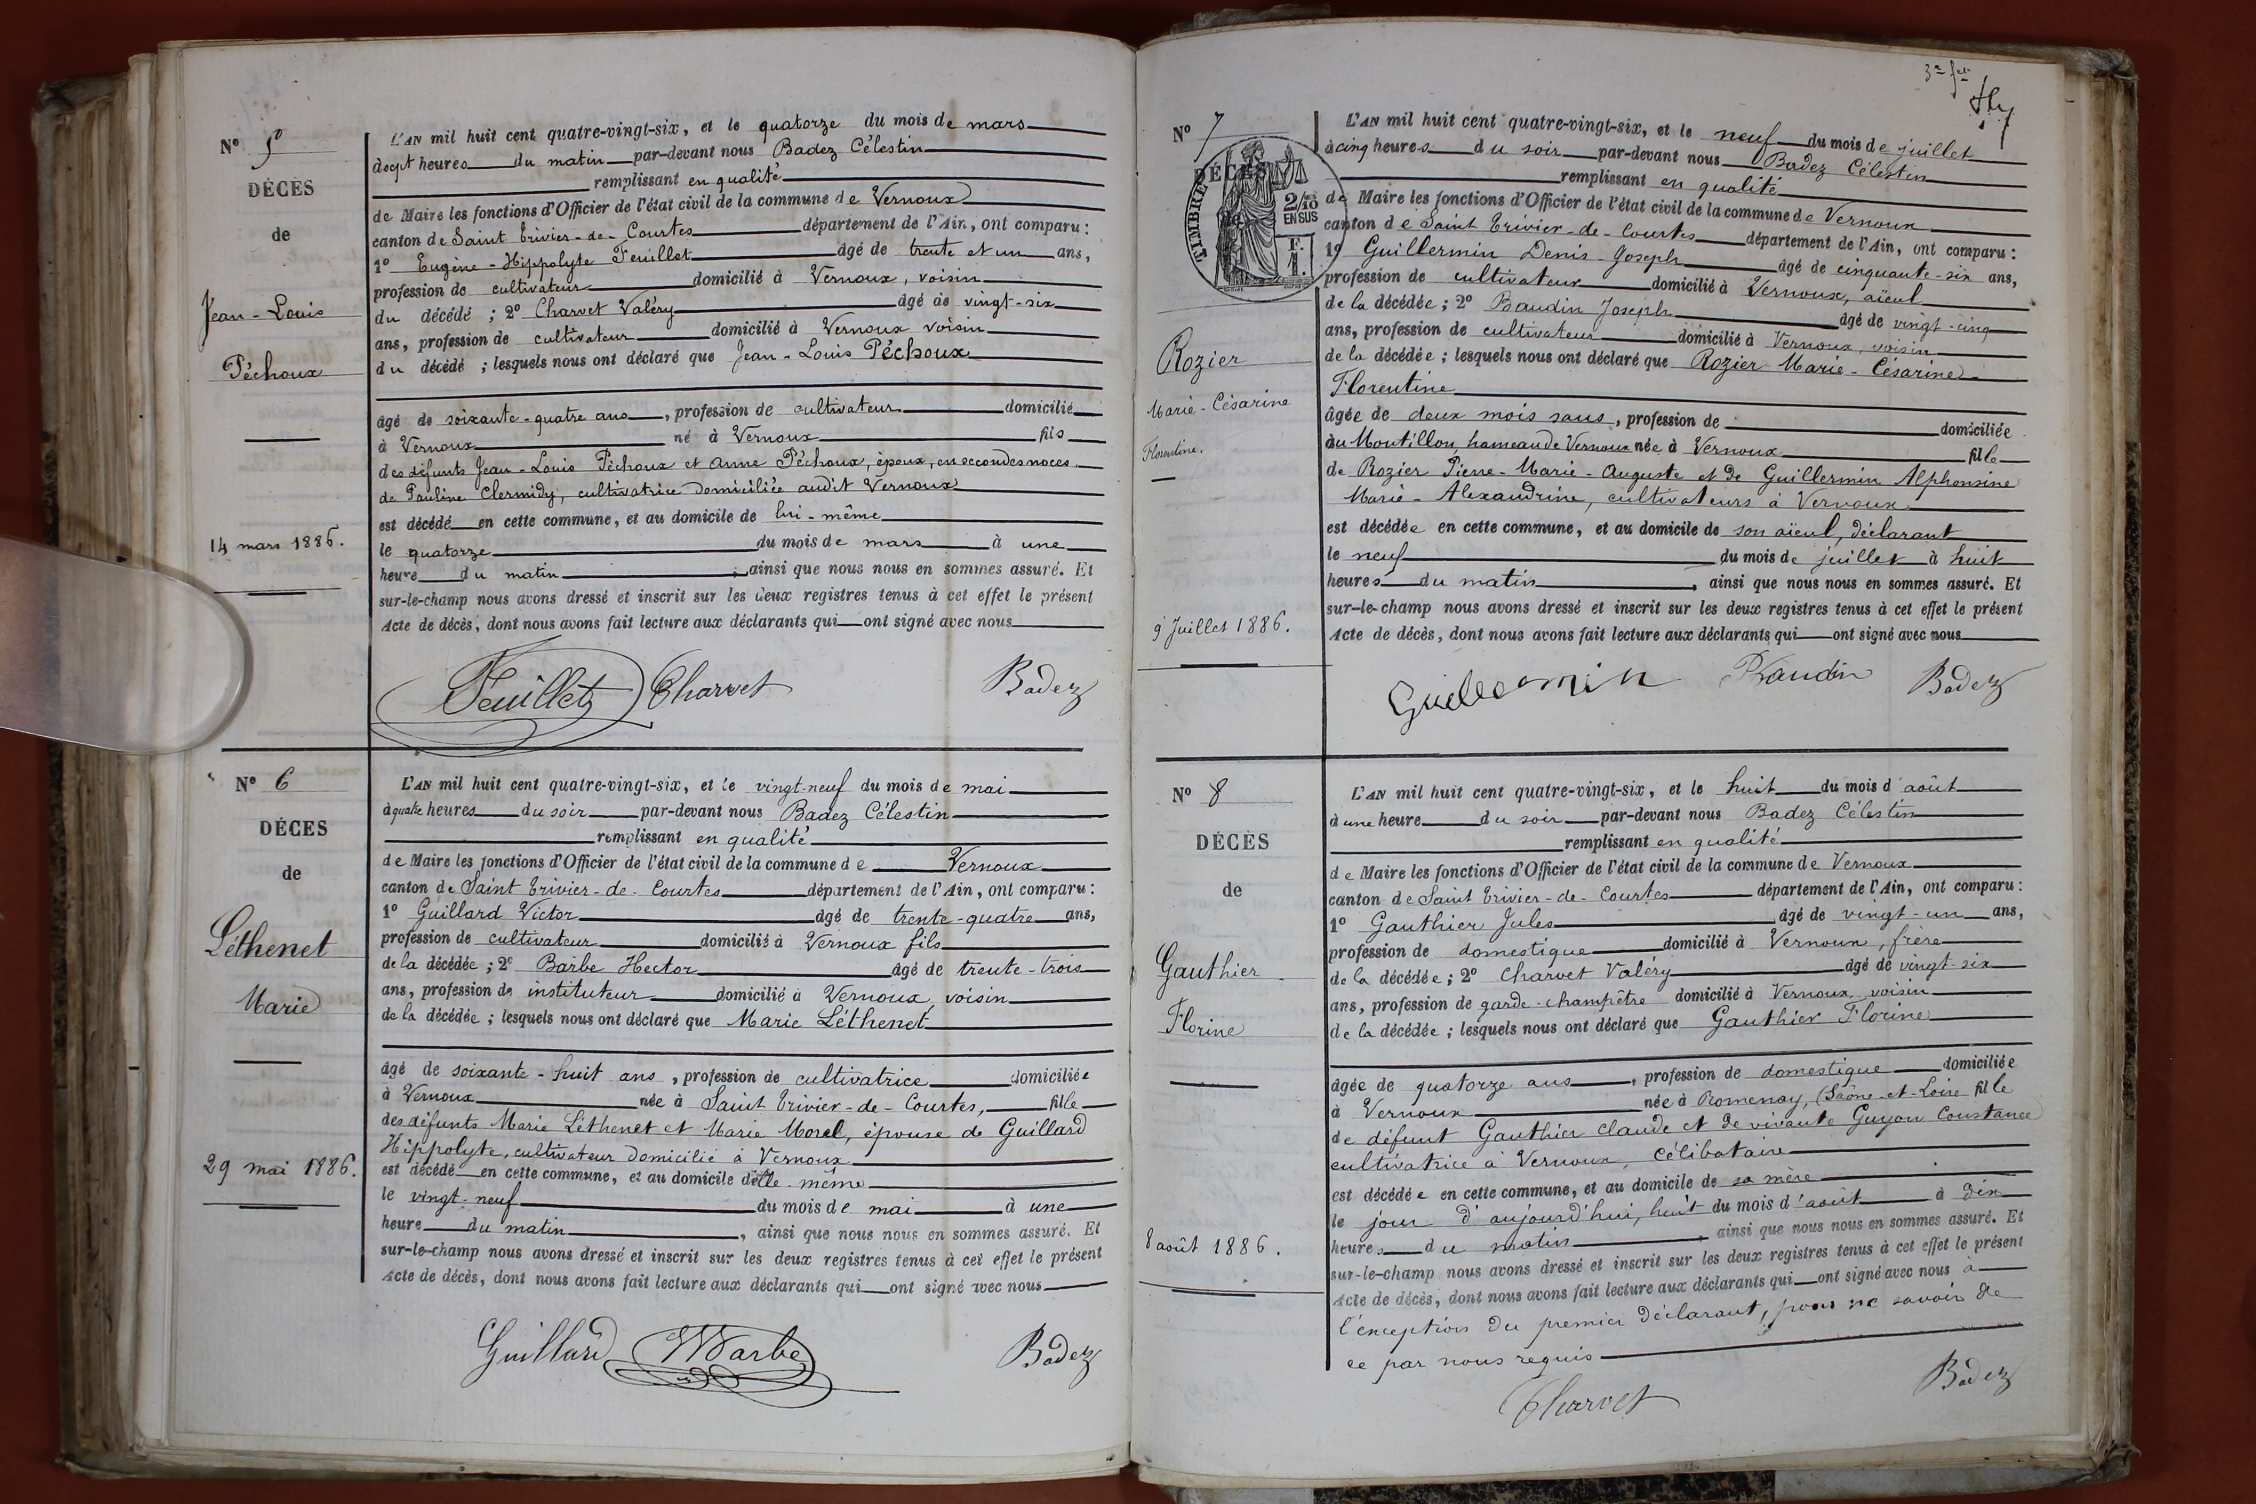 Nº 5
DÉCÈS
de
Jean-Louis
Péchoux
14 mars 1886.
L'AN mil huit cent quatre-vingt-six, et le quatorze du mois de mars
à sept heures du matin par-devant nous Badez Célestin
remplissant en qualité
de Maire les fonctions d'Officier de l'état civil de la commune de Vernoux
canton de Saint Trivier-de-Courtes département de l'Ain, ont comparu :
1º Eugène-Hippolyte Feuillet âgé de trente et un ans,
profession de cultivateur domicilié à Vernoux, voisin
du décédé ; 2º Charvet Valéry âgé de vingt-six
ans, profession de cultivateur domicilié à Vernoux voisin
du décédé ; lesquels nous ont déclaré que Jean-Louis Péchoux
âgé de soixante-quatre ans, profession de cultivateur domicilié
à Vernoux né à Vernoux fils
des défunts Jean-Louis Péchoux et Anne Péchoux, époux, en secondes noces
de Pauline Clermidy, cultivatrice domiciliée audit Vernoux
est décédé en cette commune, et au domicile de lui-même
le quatorze du mois de mars à une
heure du matin, ainsi que nous nous en sommes assuré. Et
sur-le-champ nous avons dressé et inscrit sur les deux registres tenus à cet effet le présent
Acte de décès, dont nous avons fait lecture aux déclarants qui ont signé avec nous
Feuillet Charvet Badez
Nº 6
DÉCÈS
de
Léthenet
Marie
29 mai 1886.
L'AN mil huit cent quatre-vingt-six, et le vingt-neuf du mois de mai
à quatre heures du soir par-devant nous Badez Célestin
remplissant en qualité
de Maire les fonctions d'Officier de l'état civil de la commune de Vernoux
canton de Saint Trivier-de-Courtes département de l'Ain, ont comparu :
1º Guillard Victor âgé de trente-quatre ans,
profession de cultivateur domicilié à Vernoux fils
de la décédée ; 2º Barbe Hector âgé de trente-trois
ans, profession de instituteur domicilié à Vernoux, voisin
de la décédée ; lesquels nous ont déclaré que Marie Léthenet
âgé de soixante-huit ans, profession de cultivatrice domiciliée
à Vernoux née à Saint Trivier-de-Courtes, fille
des défunts Marie Léthenet et Marie Morel, épouse de Guillard
Hippolyte, cultivateur domicilié à Vernoux
est décédé en cette commune, et au domicile d'elle-même
le vingt-neuf du mois de mai à une
heure du matin, ainsi que nous nous en sommes assuré. Et
sur-le-champ nous avons dressé et inscrit sur les deux registres tenus à cet effet le présent
Acte de décès, dont nous avons fait lecture aux déclarants qui ont signé avec nous
Guillard HBarbe Badez
Nº 7
DÉCÈS
de
TIMBRE
2/10 EN SUS
F. 1.
Rozier
Marie-Césarine
Florentine.
9 Juillet 1886.
L'AN mil huit cent quatre-vingt-six, et le neuf du mois de juillet
à cinq heures du soir par-devant nous Badez Célestin
remplissant en qualité
de Maire les fonctions d'Officier de l'état civil de la commune de Vernoux
canton de Saint Trivier-de-Courtes département de l'Ain, ont comparu :
1º Guillermin Denis-Joseph âgé de cinquante-six ans,
profession de cultivateur domicilié à Vernoux, aïeul
de la décédée ; 2º Baudin Joseph âgé de vingt-cinq
ans, profession de cultivateur domicilié à Vernoux, voisin
de la décédée ; lesquels nous ont déclaré que Rozier Marie-Césarine
Florentine
âgée de deux mois sans, profession de domiciliée
au Montillon, hameau de Vernoux née à Vernoux fille
de Rozier Pierre-Marie-Auguste et de Guillermin Alphonsine
Marie-Alexandrine, cultivateurs à Vernoux
est décédée en cette commune, et au domicile de son aïeul, déclarant
le neuf du mois de juillet à huit
heures du matin, ainsi que nous nous en sommes assuré. Et
sur-le-champ nous avons dressé et inscrit sur les deux registres tenus à cet effet le présent
Acte de décès, dont nous avons fait lecture aux déclarants qui ont signé avec nous
Guillermin Baudin Badez
Nº 8
DÉCÈS
de
Gauthier
Florine
8 août 1886.
L'AN mil huit cent quatre-vingt-six, et le huit du mois d'août
à une heure du soir par-devant nous Badez Célestin
remplissant en qualité
de Maire les fonctions d'Officier de l'état civil de la commune de Vernoux
canton de Saint Trivier-de-Courtes département de l'Ain, ont comparu :
1º Gauthier Jules âgé de vingt-un ans,
profession de domestique domicilié à Vernoux, frère
de la décédée ; 2º Charvet Valéry âgé de vingt-six
ans, profession de garde-champêtre domicilié à Vernoux, voisin
de la décédée ; lesquels nous ont déclaré que Gauthier Florine
âgée de quatorze ans, profession de domestique domiciliée
à Vernoux née à Romenay, (Saône-et-Loire fille
de défunt Gauthier Claude et de vivante Guyon Constance
cultivatrice à Vernoux, Célibataire
est décédée en cette commune, et au domicile de sa mère
le jour d'aujourd'hui, huit du mois d'août à dix
heures du matin, ainsi que nous nous en sommes assuré. Et
sur-le-champ nous avons dressé et inscrit sur les deux registres tenus à cet effet le présent
Acte de décès, dont nous avons fait lecture aux déclarants qui ont signé avec nous à
l'exception du premier déclarant, pour ne savoir de
ce par nous requis
Charvet Badez